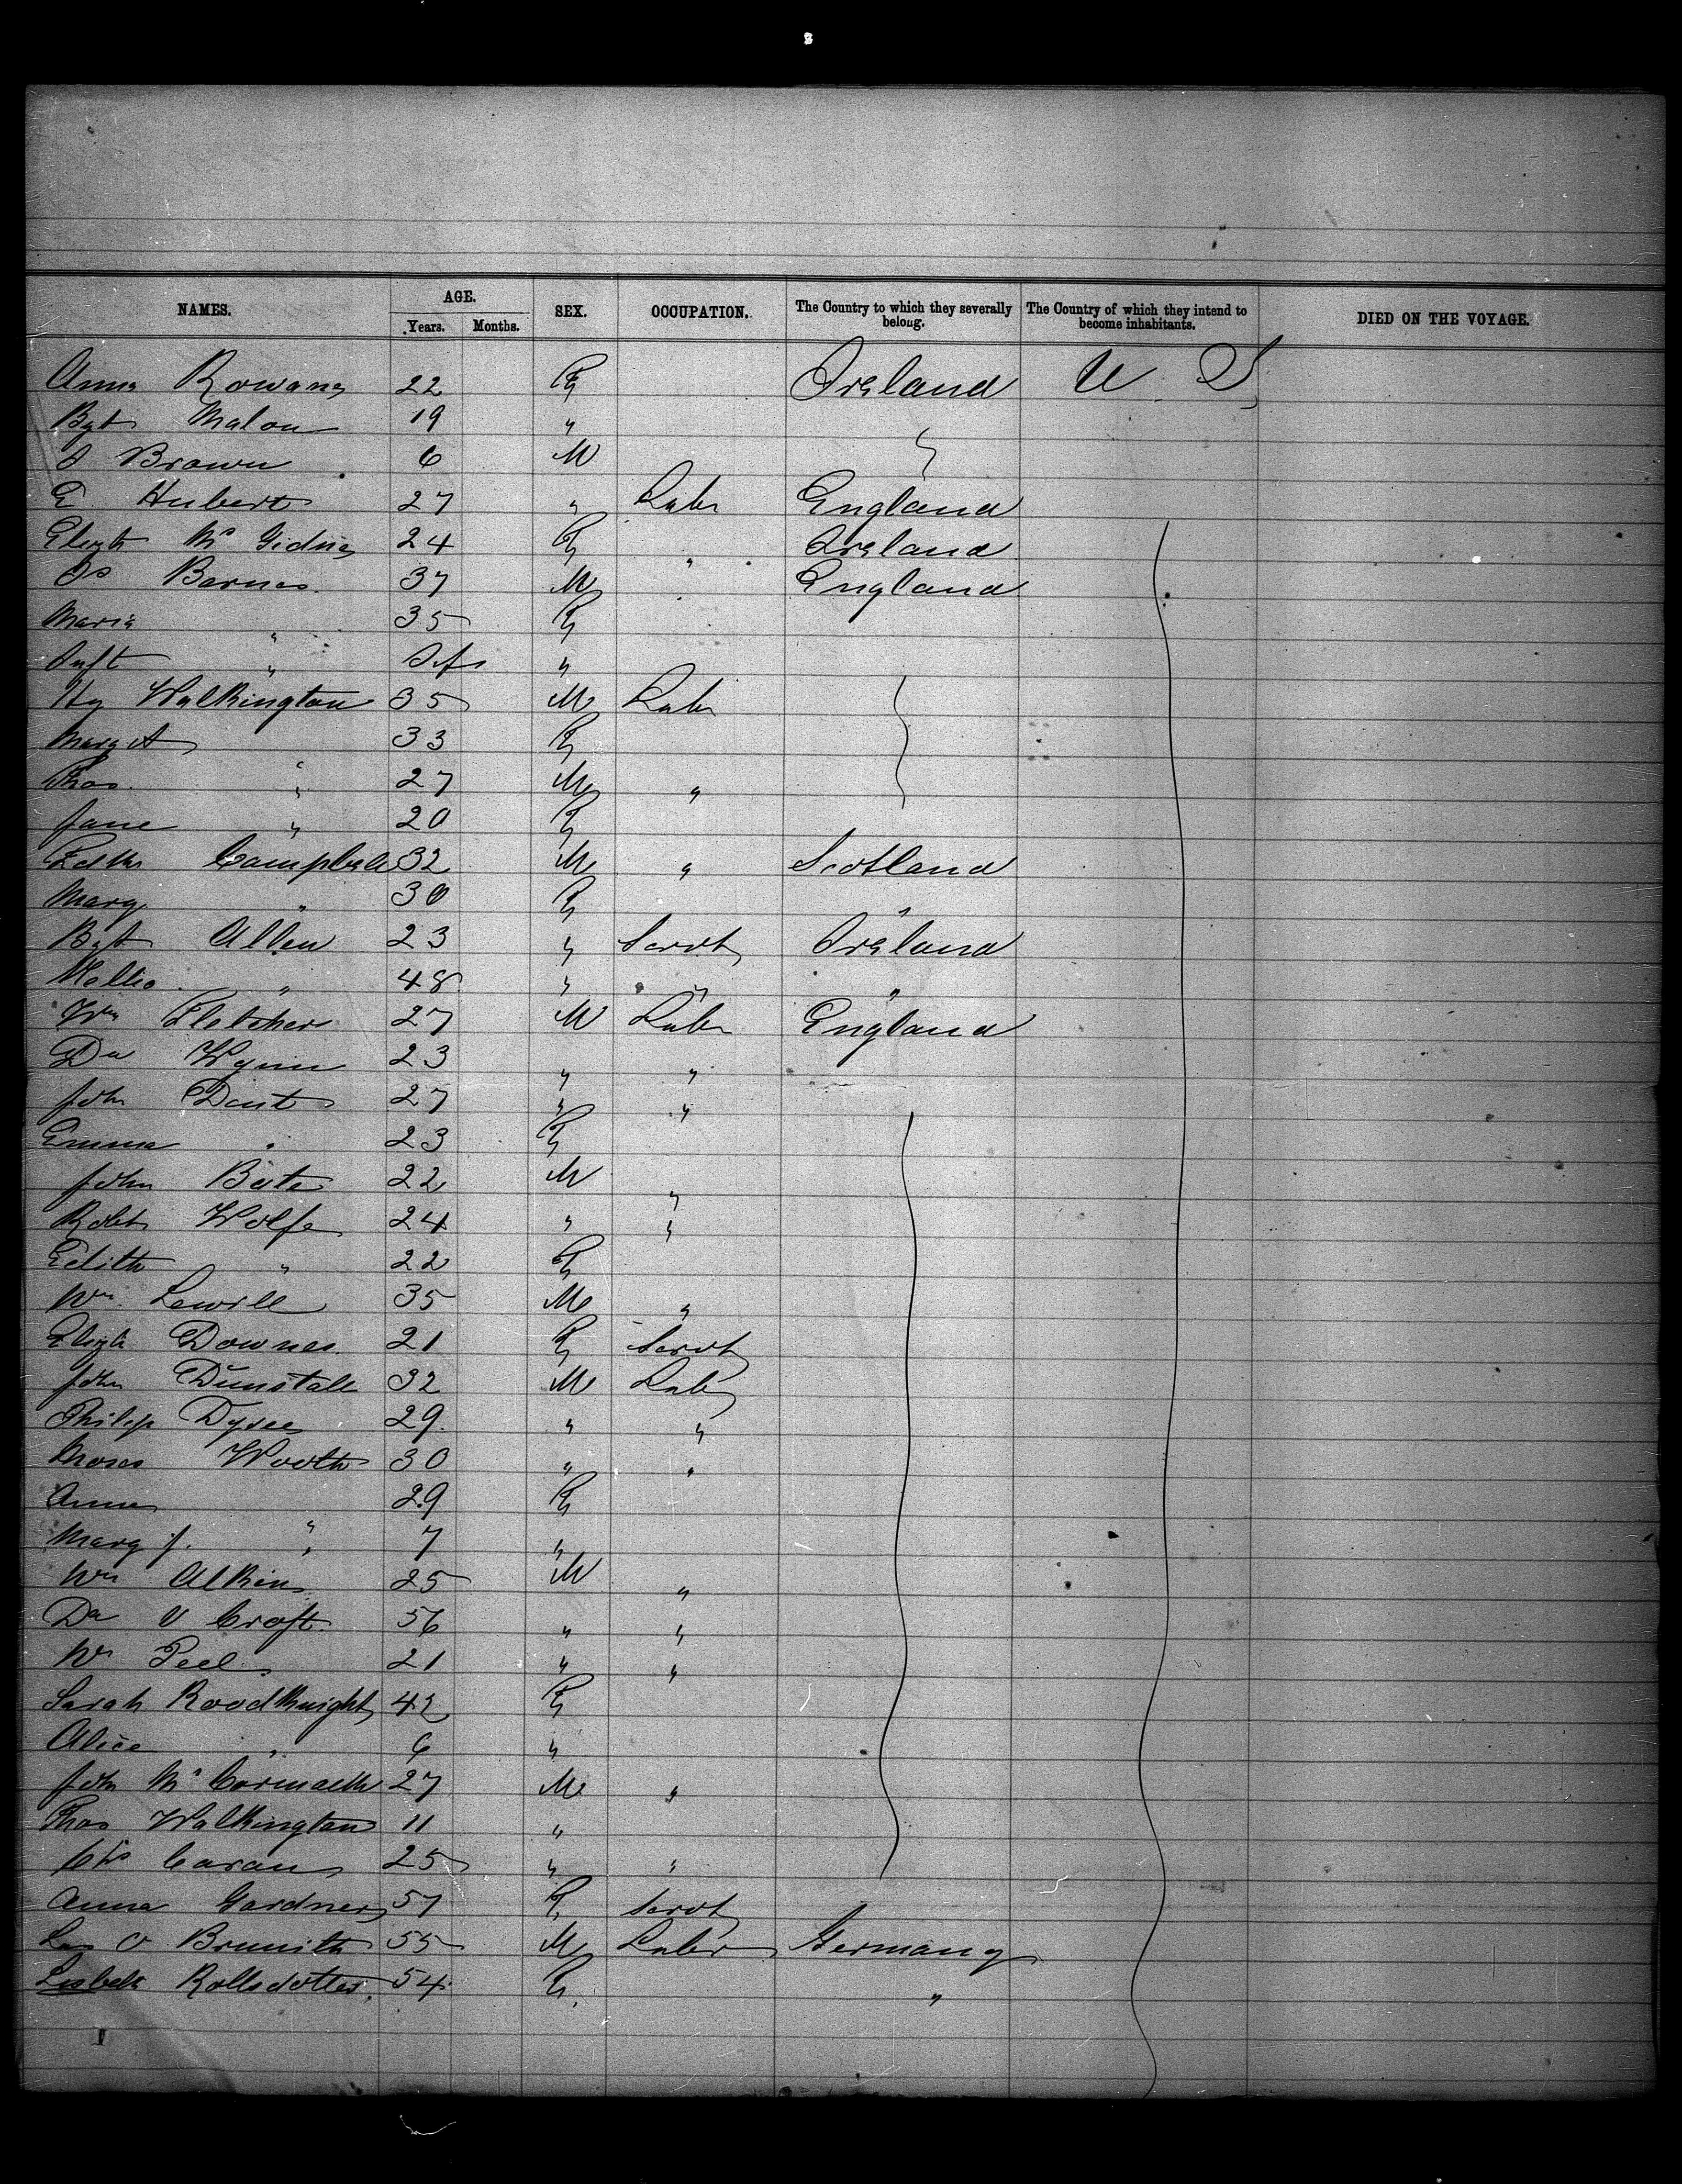 NAMES. AGE. Years. Months. SEX. OCCUPATION. The Country to which they severally belong. The Country of which they intend to become inhabitants. DIED ON THE VOYAGE.
Anna 22 F Ireland U S
Bgt Malon 19 "
Brown 6 M
E. Hubert 27 " Labr England
Elizth Mc 24 F " Ireland
Barnes 37 M England
Maria " 35 F
Inft " Inf "
Hy Walkington 35 M Labr
Margt " 33 F
Thos " 27 M "
Jane " 20 F
Campbell 32 M " Scotland
Mary " 30 F "
Bgt Allen 23 " Servt Ireland
" 48 " " "
Wm Fletcher 27 M Labr England
Wynn 23 " "
John Dent 27 " "
Emma " 23 F
John Bate 22 M "
Robt Wolfe 24 " "
Edith " 22 F
Wm 35 M "
Elizth Downes 21 F Servt
John Dunstall 32 M Labr
Philip 29 " "
Moses 30 " "
Anna " 29 F
Mary J. " 7 "
Wm 25 M "
Croft 56 " "
Wm Peel 21 " "
Sarah Roodknight 42 F
Alice " 6 "
John Mc 27 M "
Thos Walkington 11 "
25 " "
Anna Gardner 57 F Servt
55 M Labr Germany
Lisbeth 54 F "